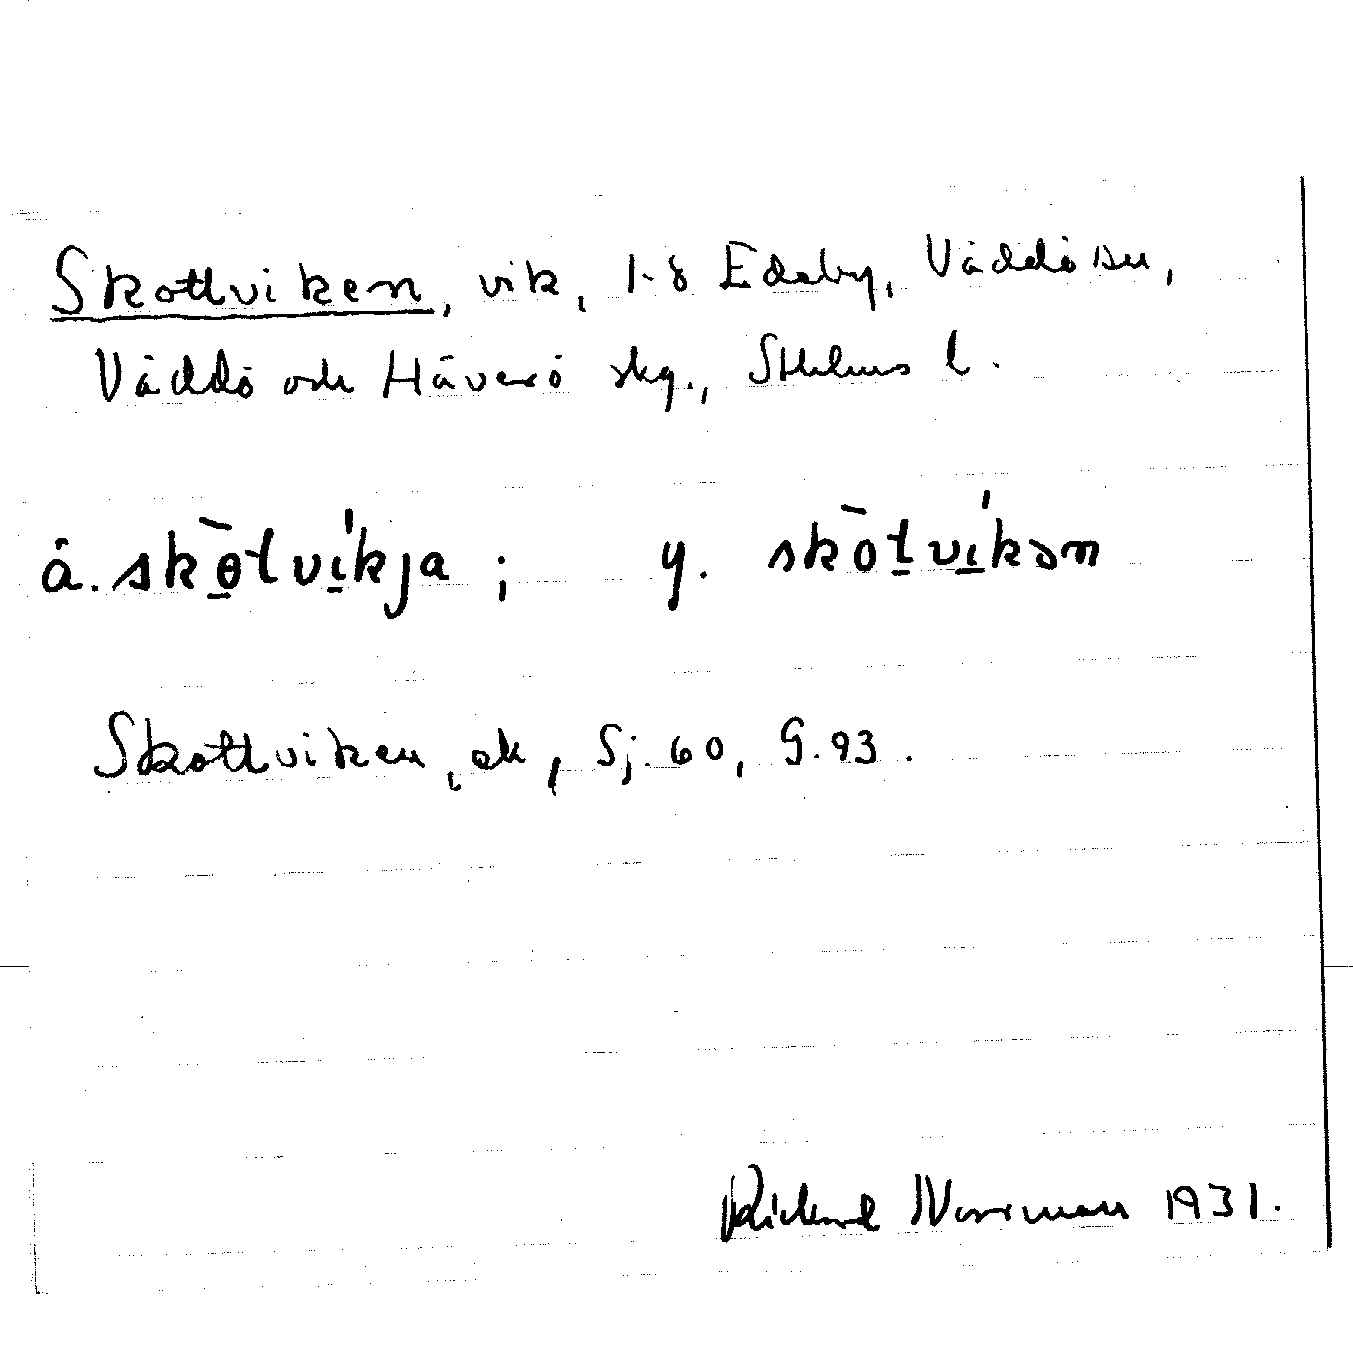 Skottviken, vik, 1-8 Edeby, Väddö sn,
Väddö och Häverö skg., Sthlms l.
ä. skò̱tví̱kja ; y. skòṯví̱kən
Skottviken, ek, Sj. 60, G. 93.
Rickard Norrman 1931.